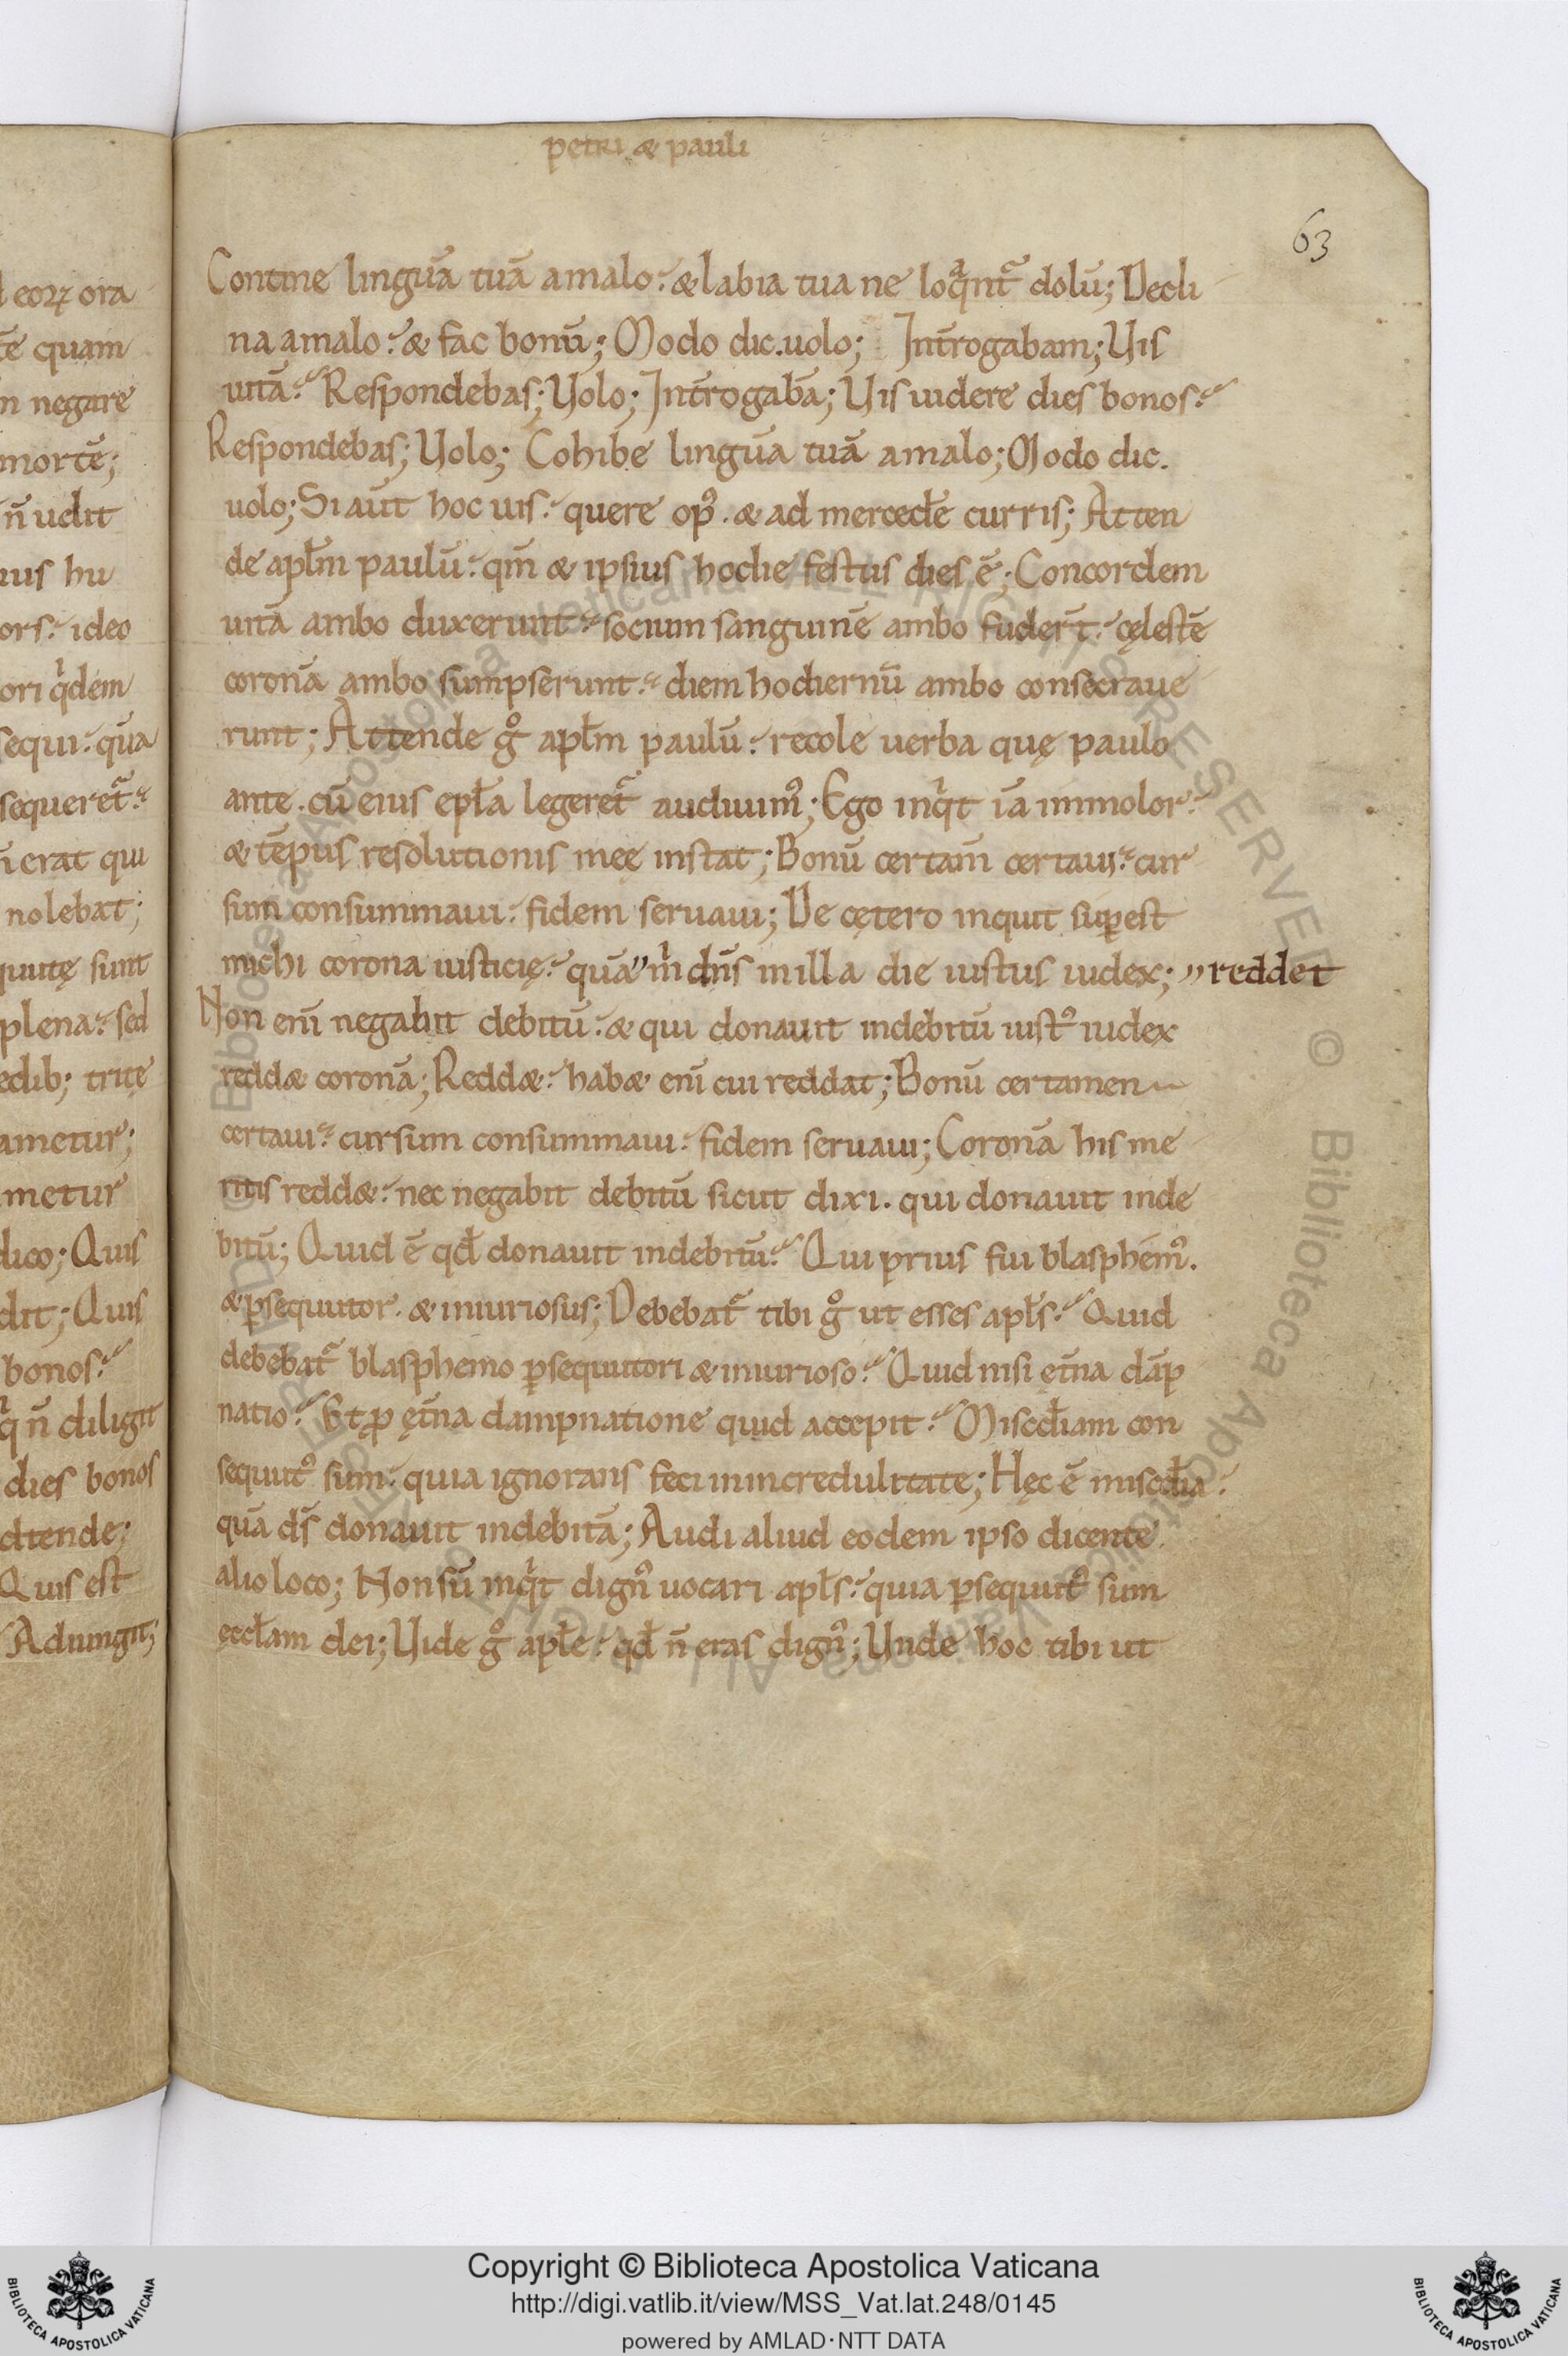 petri & pauli
63
Contine linguā tuā a malo. & labia tua ne loqᵃnt᷑ dolū; Decli
na a malo. & fac bonū; Modo dic. uolo; Int̄rogabam; Uis
uitā. Respondebas; Uolo; Int̄rogabā; Uis uidere dies bonos.
Respondebas; Uolo; Cohibe linguā tuā a malo; Modo dic.
uolo; Si aūt hoc uis. quere opꝰ. & ad mercedē curris; Atten
de apłm paulū. qm̄ & ipsius hodie festus dies ē; Concordem
uitā ambo duxerunt. socium sanguinē ambo fudert̄. cęlestē
coronā ambo sumpserunt. diem hodiernū ambo consecraue
runt; Attende gͦ apłm paulū. recole uerba quę paulo
ante. cū eius epła legeret᷑ audiuimꝰ; Ego inqͥt iā immolor.
& tēpus resolutionis meę instat; Bonū certam̄ certaui. cur
sum consummaui. fidem seruaui; De cętero inquit suꝑest
michi corona iusticię. quā" mͥ dn̄s in illa die iustus iudex; "reddet
Non eni̅ negabit debitū. & qui donauit indebitū iustꝰ iudex
redd& coronā; Redd&. hab& eni̅ cui reddat; Bonū certamen
certaui. cursum consummaui. fidem seruaui; Coronā his me
ritis redd&. nec negabit debitū sicut dixi. qui donauit inde
bitū; Quid ē qđ donauit indebitū. Qui prius fui blasphemꝰ.
& ꝑsequutor. & iniuriosus; Debebat᷑ tibi gͦ ut esses apłs. Quid
debebat᷑ blasphemo ꝑsequutori & iniurioso. Quid nisi ęt̄na dāp
natio. Et ꝓ ęt̄na dampnatione quid accepit. Misc̄điam con
sequutꝰ sum. quia ignorans feci in incredulitate; Hęc ē misc̄đia.
quā ds̄ donauit indebitā; Audi aliud eodem ipso dicente
alio loco; Non sū inqͥt dignꝰ uocari apłs. quia ꝑsequutꝰ sum
ęccłam dei; Uide gͦ apłe. qđ n̄ eras dignꝰ; Unde hoc tibi ut
eoꝝ ora
quam
negare
mortē;
n̄ uidit
ideo
qͥdem
sequi. quā
sequeret᷑.
n̄ erat qui
nolebat;
sunt
plena. sed
tritę
ametur;
metur
dico; Quis
dit; Quis
bonos.
n̄ diligit
dies bonos
Quis est
Adiungit;
Copyright © Biblioteca Apostolica Vaticana
http://digi.vatlib.it/view/MSS_Vat.lat.248/0145
powered by AMLAD·NTT DATA
BIBLIOTECA APOSTOLICA VATICANA
BIBLIOTECA APOSTOLICA VATICANA